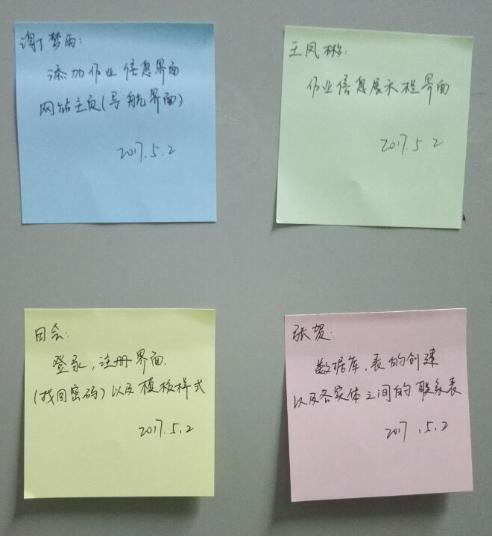 梦雨:
添加作业信息界面
网站主页(导航界面)
2017.5.2
王凤彬:
作业信息展示栏界面
2017.5.2
田会:
登录,注册界面.
(找回密码)以及模板样式
2017.5.2
张贺:
数据库.表的创建
以及各实体之间的联系表
2017.5.2